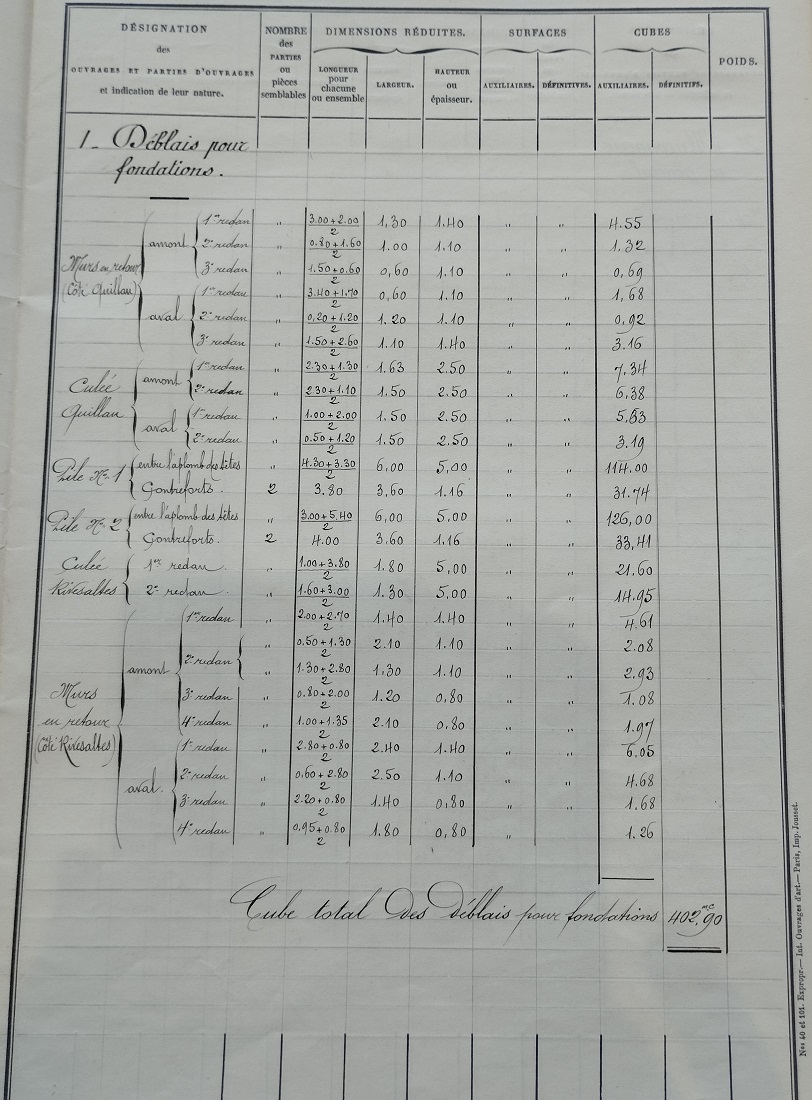 DÉSIGNATION
des
OUVRAGES ET PARTIES D'OUVRAGES
et indication de leur nature.
NOMBRE
des
PARTIES
ou
pièces
semblables
DIMENSIONS RÉDUITES.
LONGUEUR
pour
chacune
ou ensemble
LARGEUR.
HAUTEUR
ou
épaisseur.
SURFACES
AUXILIAIRES. DÉFINITIVES.
CUBES
AUXILIAIRES. DÉFINITIFS.
POIDS.
1_ Déblais pour
fondations.
Murs en retour
(Côté Quillan)
amont
1er redan " 3.00+2.00/2 1,30 1.40 " " 4.55
2e redan " 0.80+1.60/2 1.00 1.10 " " 1.32
3e redan " 1.50+0.60/2 0,60 1.10 " " 0,69
aval
1er redan " 3.40+1.70/2 0,60 1.10 " " 1,68
2e redan " 0,20+1.20/2 1.20 1.10 " " 0.92
3e redan " 1.50+2.60/2 1.10 1.40 " " 3.16
Culée
Quillan
amont
1er redan " 2.30+1.30/2 1.63 2.50 " " 7,34
2e redan " 2.30+1.10/2 1.50 2.50 " " 6.38
aval
1er redan " 1.00+2.00/2 1.50 2.50 " " 5.63
2e redan " 0.50+1.20/2 1.50 2.50 " " 3.19
Pile No. 1
entre l'aplomb des têtes " 4.30+3.30/2 6,00 5,00 " " 114.00
Contreforts. 2 3.80 3,60 1.16 " " 31.74
Pile No. 2
entre l'aplomb des têtes " 3.00+5.40/2 6,00 5.00 " " 126,00
Contreforts. 2 4.00 3.60 1.16 " " 33,41
Culée
Rivesaltes
1er redan. " 1.00+3.80/2 1.80 5,00 " " 21.60
2e redan. " 1.60+3.00/2 1.30 5,00 " " 14.95
Murs
en retour
(Côté Rivesaltes)
amont
1er redan " 2.00+2.70/2 1.40 1.40 " " 4.61
2e redan " 0.50+1.30/2 2.10 1.10 " " 2.08
" 1.30+2.80/2 1,30 1.10 " " 2.93
3e redan " 0.80+2.00/2 1.20 0,80 " " 1.08
4e redan " 1.00+1.35/2 2.10 0,80 " " 1.97
aval.
1er redan " 2.80+0.80/2 2.40 1.40 " " 6.05
2e redan " 0.60+2.80/2 2.50 1.10 " " 4.68
3e redan " 2.20+0.80/2 1.40 0,80 " " 1.68
4e redan " 0.95+0.80/2 1.80 0,80 " 1.26
Cube total des déblais pour fondations 402,mc90
Nos 40 et 101. Expropr.— Int. Ouvrages d'art.— Paris, Imp. Jousset.